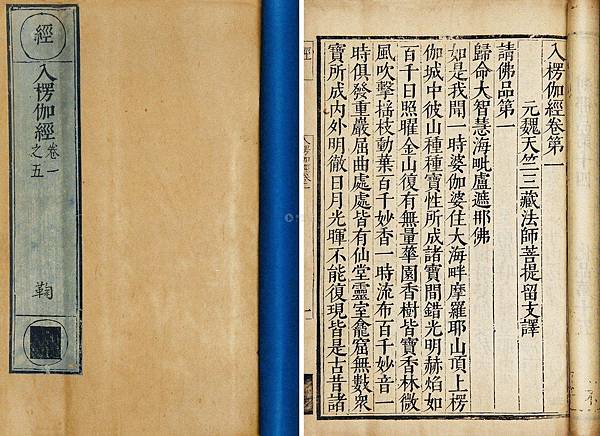 經
入楞伽經
卷一之五
鞠
入楞伽經卷第一
元魏天竺三藏法師菩提留支譯
請佛品第一
歸命大智慧海毗盧遮那佛
如是我聞一時婆伽婆住大海畔摩羅耶山頂上楞
伽城中彼山種種寶性所成諸寶間錯光明赫焰如
百千日照曜金山復有無量華園香樹皆寶香林微
風吹擊搖枝動葉百千妙香一時流布百千妙音一
時俱發重巖屈曲處處皆有仙堂靈室龕窟無數衆
寶所成內外明徹日月光暉不能復現皆是古昔諸